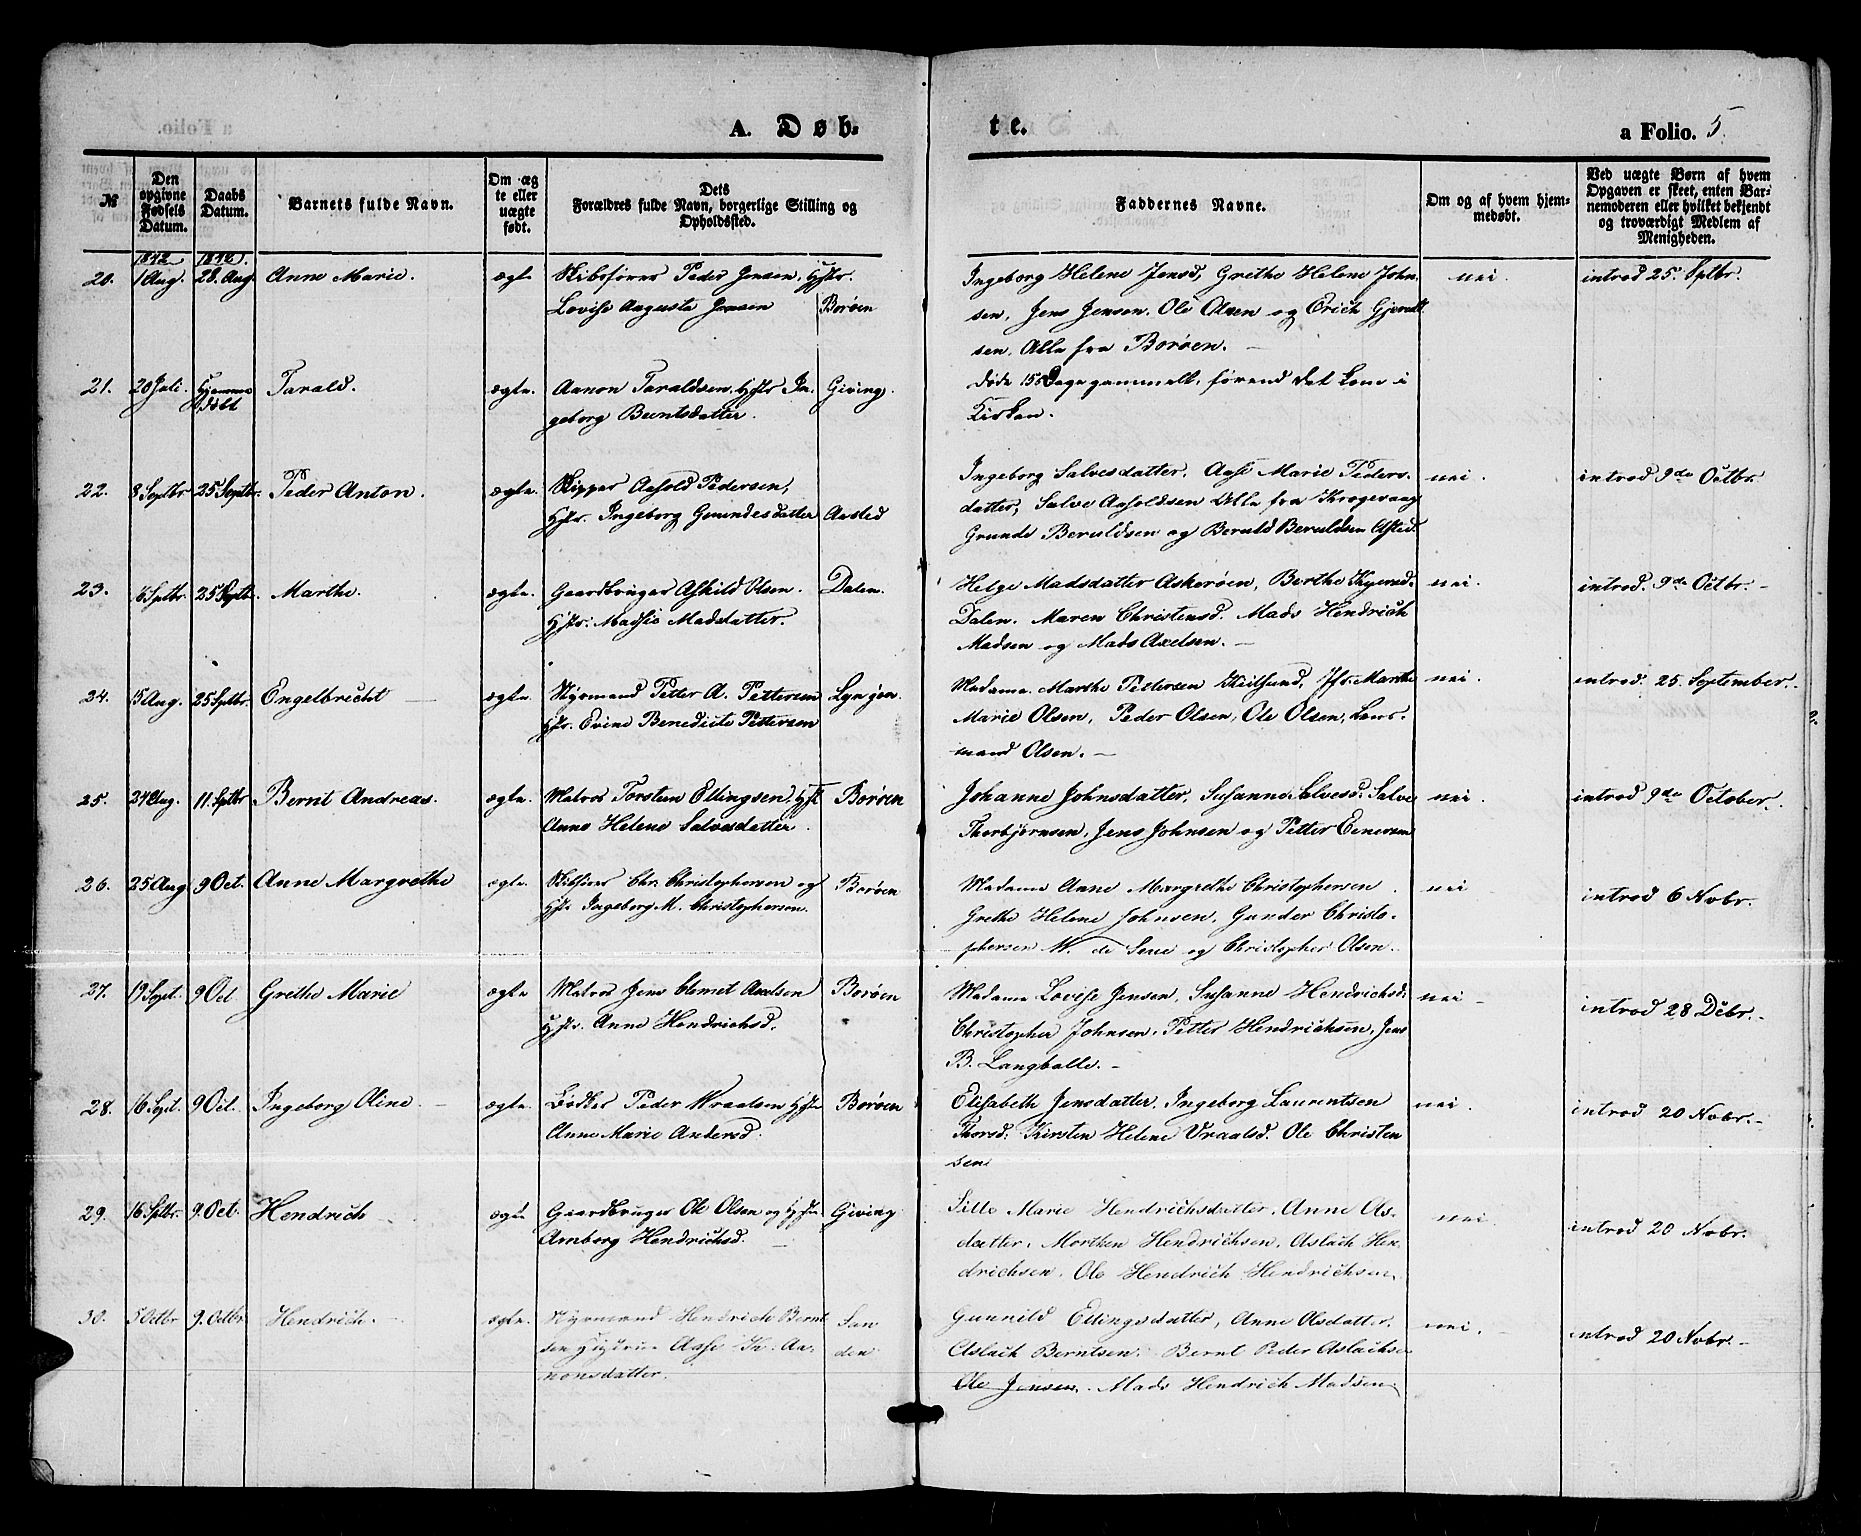 A. Døb-
te.
a Folio. 5.
№
Den opgivne Fødsels Datum.
Daabs Datum.
Barnets fulde Navn.
Om ægte eller uægte født.
Dets Forældres fulde Navn, borgerlige Stilling og Opholdssted.
Faddernes Navne.
Om og af hvem hjemmedøbt.
Ved uægte Børn af hvem Opgaven er skeet, enten Barnemoderen eller hvilket bekjendt og troværdigt Medlem af Menigheden.
1842 1842.
20. 1 Aug. 28. Aug. Anne Marie. ægte Skibsfører Peder Jensen, Hstr.
Lovise Augusta Jensen Borøen
Ingeborg Helene Jensd, Grethe Helene John-
sen, Jens Jensen. Ole Olsen og Erich
sen, Alle fra Borøen. —
nei. introd 25. Sptbr.
21. 20 Juli. Hjemme døbt Tarald. ægte. Aanon Taraldsen, Hstr. In- Giving.
geborg Berntsdatter.
døde 15 Dage gammelt, førend det kom i
Kirken.
22. 8 Septbr 25 Septbr. Peder Anton. ægte. Skipper Aasold Pedersen,
Hstr. Ingeborg Gundesdatter Aasted
Ingeborg Salvesdatter. Aase Marie Peders-
datter, Salve Aasoldsen Alle fra Krogevaag
Grunde Beruldsen og Beruld Beruldsen
nei. introd 9de Octbr.
23. 6 Septbr. 25 Septb. Marthe. ægte. Gaardbruger Askild Olsen. Dalen.
Hstr. Madsio Madsdatter.
Helge Madsdatter Askerøen, Berthe
Dalen. Maren Christensd. Mads Hendrich
Madsen og Mads Axelsen. —
nei. introd. 9de Octbr. —
24. 15 Aug. 25 Sptbr. Engelbrecht — ægte. Styrmand Peter A. Pettersen Lyngøer.
Hstr. Evine Benedicte Pettersen
Madame Marthe Pettersen Jfr. Marthe
Marie Olsen, Peder Olsen, Ole Olsen, Lens-
mand Olsen. —
nei. introd. 25. September. —
25. 24 Aug. 11. Sptbr Bernt Andreas. ægte. Matros Torsten Ellingsen, Hstr Borøen
Anne Helene Salvesdatter.
Johanne Johnsdatter, Susanne Salvesd. Salve
Thorbjørnsen, Jens Johnsen og Petter Evensen
nei. introd 9de October.
26. 25 Aug 9 Oct. Anne Margrethe ægte. Skibsfører Chr. Christophersen og Borøen
Hstr Ingeborg M. Christophersen.
Madame Anne Margrethe Christophersen
Grethe Helene Johnsen, Gunder Christo-
phersen M. de Seue og Christopher Olsen.
nei introd 6 Novbr.
27. 19 Sept. 9 Oct Grethe Marie ægte Matros Jens Clemet Axelsen Borøen
Hstr. Anne Hendrichsd.
Madame Lovise Jensen, Susanne Hendrichsd.
Christopher Johnsen, Petter Hendrichsen, Jens
B. Langballe. —
nei — introd 28 Dcbr. —
28. 16 Sept. 9 Oct. Ingeborg Oline — ægte. Bødker Peder Wraalsen Hstr Borøen
Anne Marie Andersd.
Elisabeth Jensdatter. Ingeborg Laurentsen
Thorsd. Kirsten Helene Vraalsd. Ole Christen
sen
nei. introd 20 Novbr. —
29. 16 Sptbr. 9. Oct. Hendrich ægte Gaardbruger Ole Olsen og Hstr. Giving.
Amborg Hendrichsd. —
Sille Marie Hendrichsdatter. Anne Ols-
datter. Morthen Hendrichsen. Aslach Hen-
drichsen. Ole Hendrich Hendrichsen.
nei. introd 20 Novbr.
30. 5 Octbr 9. Octbr. Hendrich. ægte. Styrmand Hendrich Bernt San
sen Hustrue Aase Aa- den
nonsdatter.
Gunnild Ellingsdatter, Anne Olsdatter.
Aslach Berntsen. Bernt Peder Aslachse
Ole Jensen. Mads Hendrich Madsen.
nei. — introd 20 Novbr. —